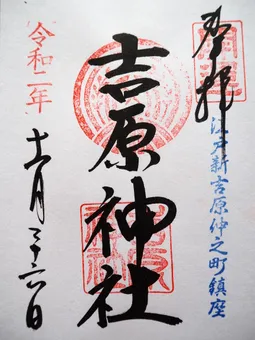 奉拝
江戸新吉原仲之町鎮座
吉原神社
令和二年
十二月二十六日